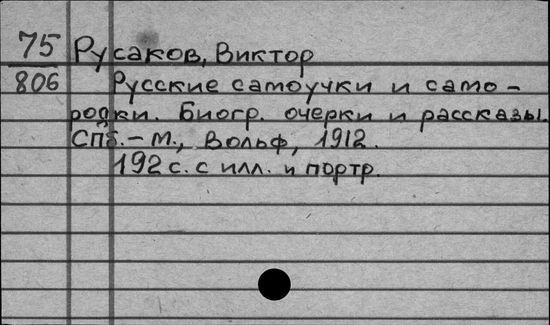 75 Русаков, Виктор
806 Русские самоучки и само-
родки. Биогр. очерки и рассказы.
СПб.-М., Вольф, 1912.
192 с. с илл. и портр.